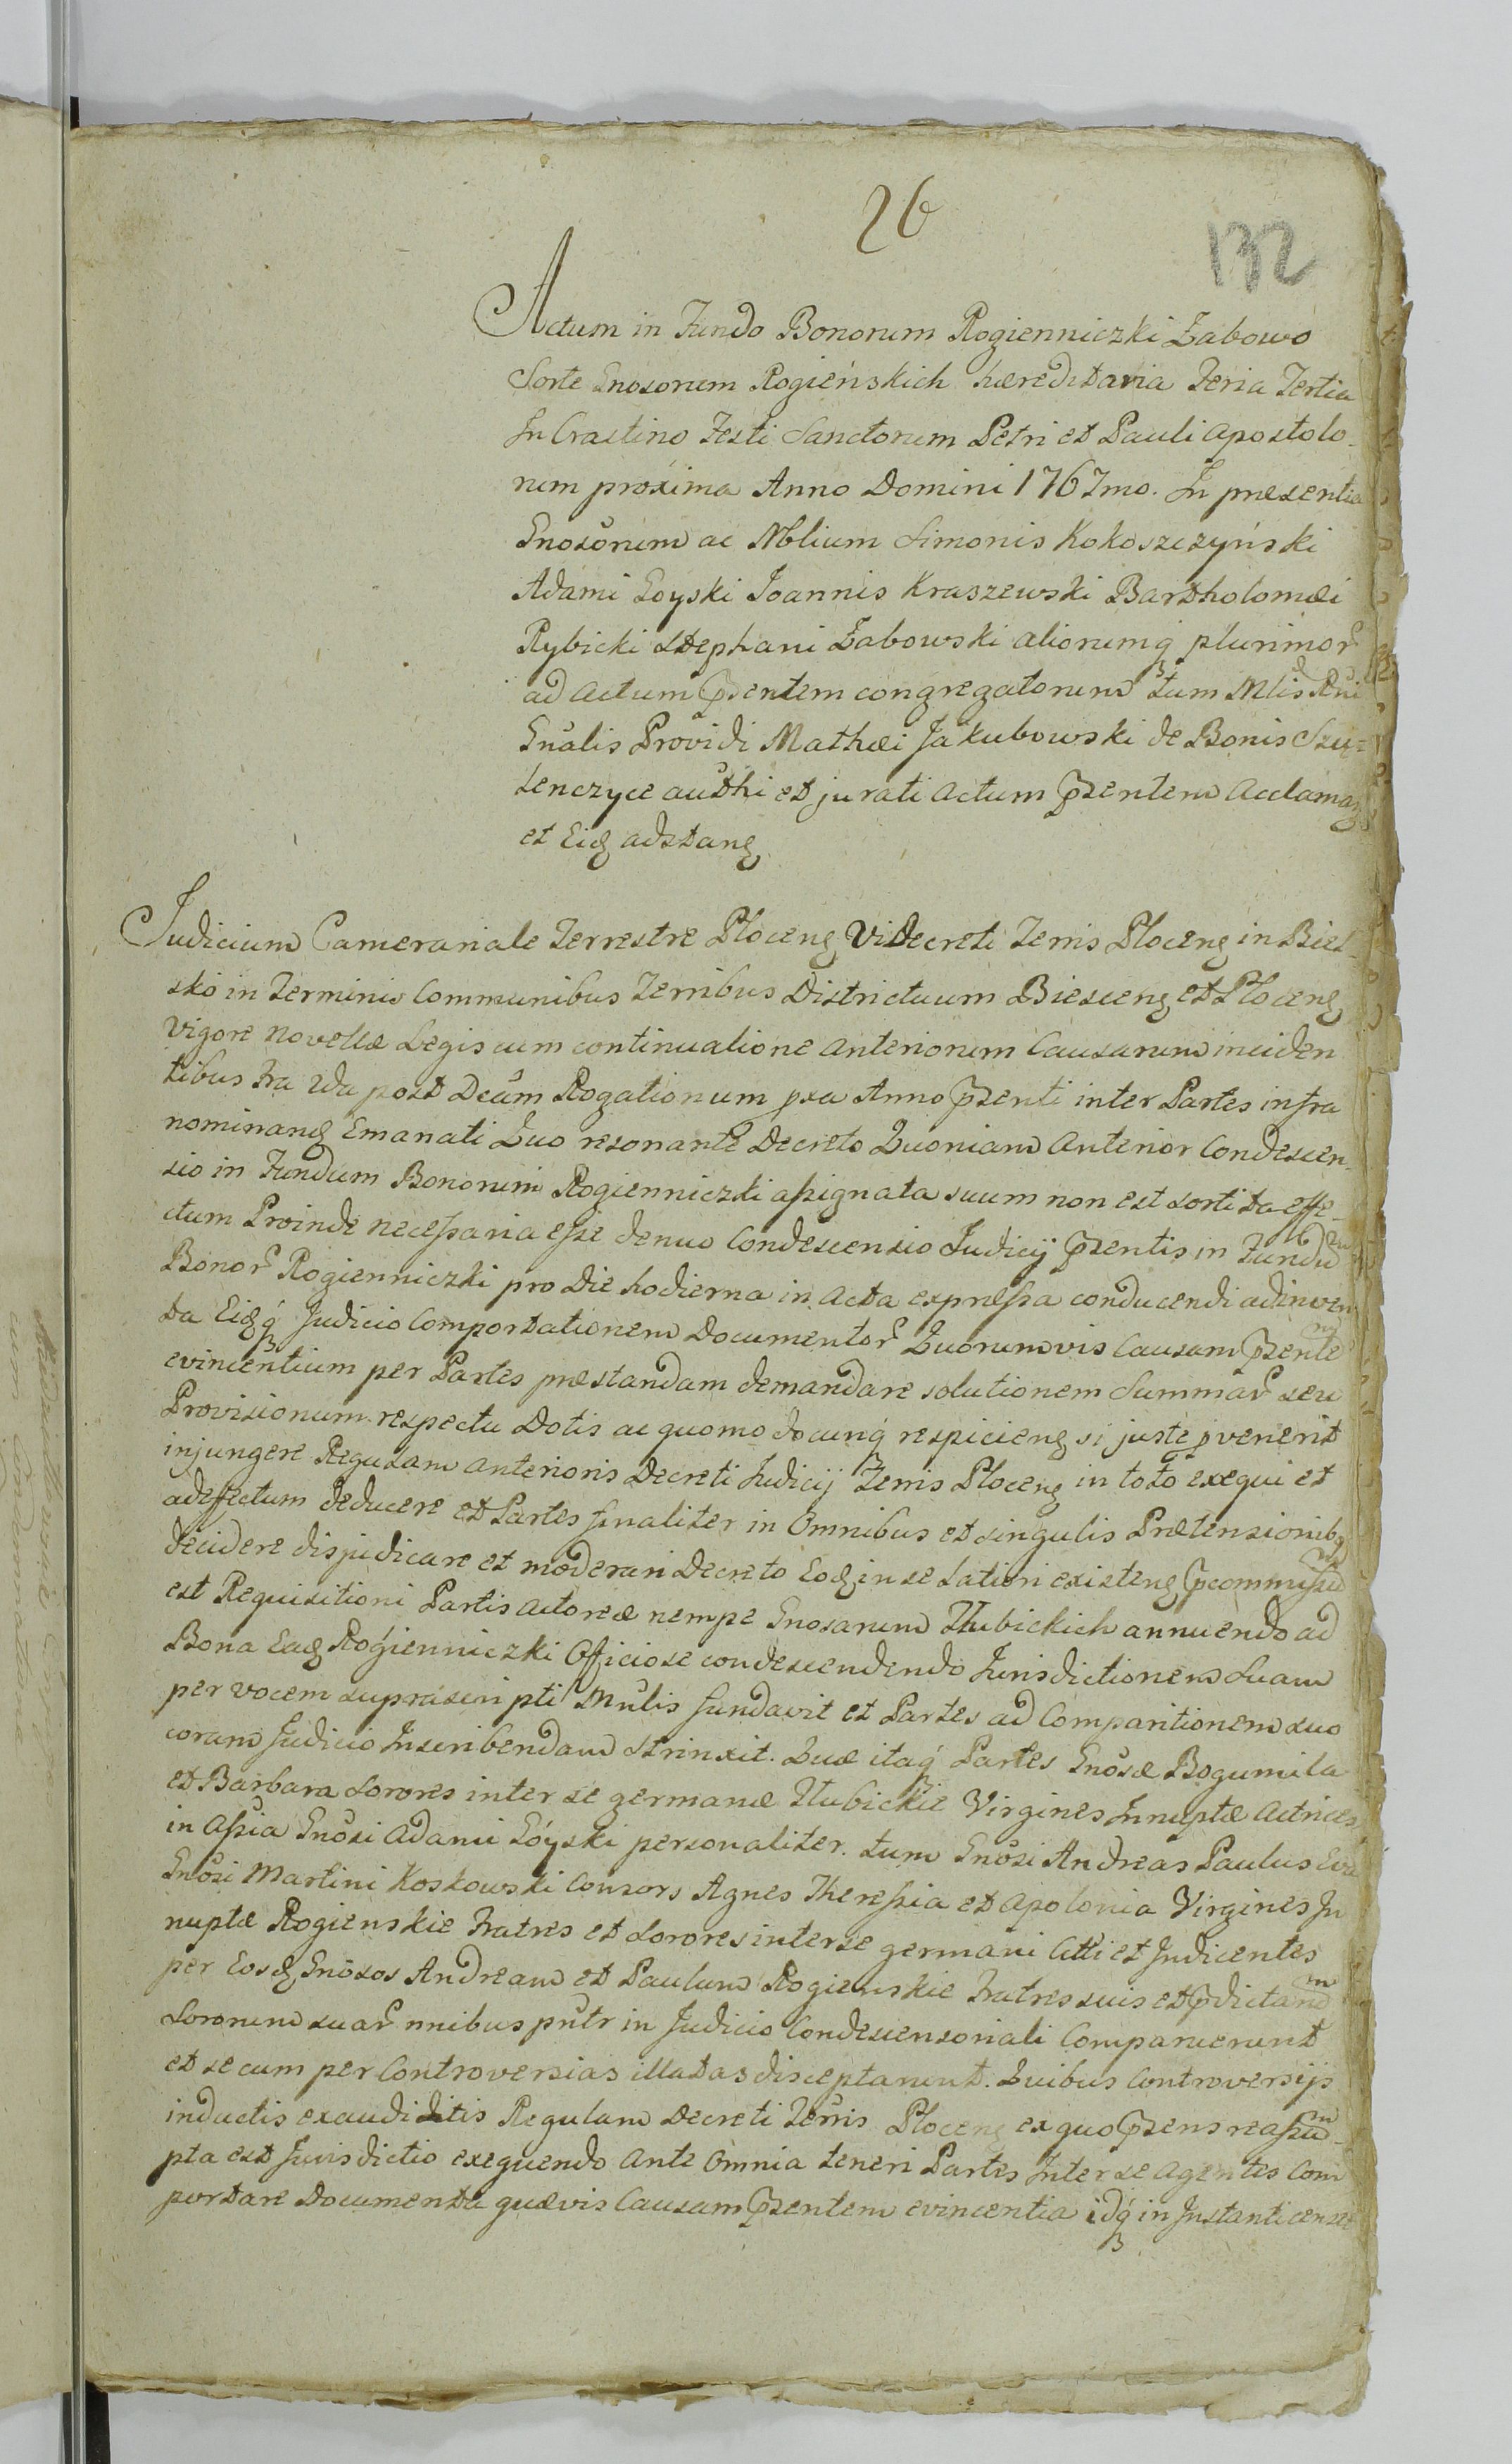 26
132
Actum in Fundo Bonorum Rogienniczki Żabowo
Sorte Gnosorum Rogieńskich hæreditaria Feria Tertia
In Crastino Festi Sanctorum Petri et Pauli Apostolo-
rum proxima Anno Domini 1767mo. In præsentia
Gnosorum ac Nblium Simonis Kokoszczyński
Adami Góyski Joannis Kraszewski Bartholomæi
Rybicki Stephani Żabowski aliorumq plurimor
ad Actum Pzentem congregatorum tum Mlis Rni
Gnalis Providi Mathæi Jakubowski de Bonis Szu=
lenczyce authi et jurati Actum Pzentem Acclaman
et Eid adstang
Judicium Camerariale Terrestre Ploceng Vi Decreti Terris Ploceng in Biel-
sko in Terminis Communibus Terribus Districtuum Bielceng et Ploceng
vigore Novellæ Legis cum continuatione Anteriorum Causarum inciden
tibus fra 2da post Dcam Rogationum pxa Anno Pzenti inter Partes infra
nominang Emanati Quo resonante Decreto Quoniam Anterior Condescen-
sio in Fundum Bonorum Rogienniczki assignata suum non est sortita effe-
ctum Proinde necessaria esse denuo Condescensio Judicij Pzentis in Fundu
Bonor Rogienniczki pro Die hodierna in Acta expressa conducendi adinven
ta Eidq Judicio Comportationem Documentor Quorumvis Causam Pzente
evincentium per Partes præstandam demandare solutionem Summar seu
Provisionum respectu Dotis ac quomodocunq respicieng si juste pvenerit
injungere Regulam Anterioris Decreti Judicij Terris Ploceng in toto exequi et
adeffectum deducere et Partes finaliter in Omnibus et singulis Prætensionib
decidere disjudicare et moderari Decreto Eod in se latiori existeng Pcommissu
est Requisitioni Partis Actoreæ nempe Gnosarum Hubickich annuendo ad
Bona Ead Rogienniczki Officiose condescendendo Jurisdictionem Suam
per vocem suprascripti Mnlis fundavit et Partes ad Comparitionem suo
coram Judicio Inscribendam strinxit. Quæ itaq Partes Gnosæ Bogumila
et Barbara Sorores inter se germanæ Hubickie Virgines Innuptæ Actrices
in Assia Gnosi Adami Góyski personaliter. tum Gnosi Andreas Paulus Eva
Gnosi Martini Koskowski Consors Agnes Theressia et Apolonia Virgines In
nuptæ Rogienskie Fratres et Sorores inter se germani Citti et Indicentes
per Eosd Gnosos Andream et Paulum Rogienskie Fratres suis et Pdictam
Sororum suar nnibus pntr in Judicio Condescensoriali Comparuerunt
et secum per Controversias illatas disceptarunt. Quibus Controversijs
inductis exauditis Regulam Decreti Terris Ploceng ex quo Pzens reassu-
pta est Jurisdictio exequendo Ante Omnia teneri Partes Inter se Agentes Com
portare Documenta quævis Causam Pzentem evincentia idq in Instanti cense